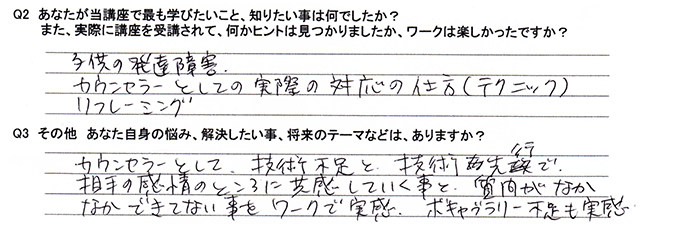 Q2 あなたが当講座で最も学びたいこと、知りたい事は何でしたか？
また、実際に講座を受講されて、何かヒントは見つかりましたか、ワークは楽しかったですか？
子供の発達障害.
カウンセラーとしての実際の対応の仕方(テクニック)
リフレーミング
Q3 その他 あなた自身の悩み、解決したい事、将来のテーマなどは、ありますか？
カウンセラーとして、技術不足と、技術先行で.
相手の感情のところに共感していく事と、質問がなか
なかできてない事をワークで実感. ボキャブラリー不足も実感.